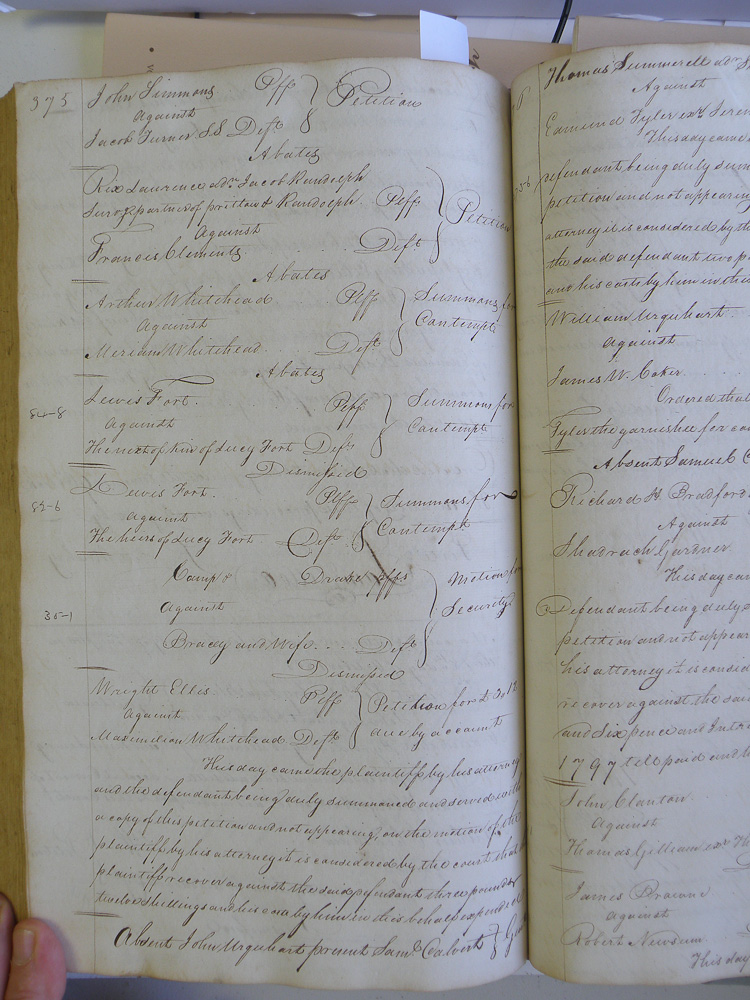 375
John Simmons Plff Petition
Against
Jacob Turner SS Deft
Abates
Rix Laurence adr. Jacob Randolph
partner of & Randolph Plff Petition
Against
Francis Clements Deft
Abates
Arthur Whitehead Plff Summons for
Against Contempt
Meriam Whitehead Deft
Abates
Lewis Fort. Plff Summons for
84-8
Against Contempt
The next of kin of Lucy Fort Defts
Dismissed
Lewis Fort. Plff Summons for
82-6
against Contempt
The heirs of Lucy Fort Deft
Camp & Drake plffs Motion for
Against Security
35-1
Bracey and Wife Deft
Dismissed
Wright Ellis Plff Petition for £ 3.. 12
Against due by account
Maximilian Whitehead Deft
This day came the plaintiff by his attorney
and the defendant being duly summoned and served with
a copy of this petition and not appearing, on the motion of the
plaintiff by his attorney it is considered by the court that
plaintiff recover against the said defendant three pounds
twelve shillings and his costs by him in this behalf expended
Absent John Urquhart present Saml. Calvert
Thomas Summerell adr.
Against
Edmund Tyler exr.
This day came
defendant being duly sum
petition and not appearing
attorney it is considered by th
the said defendant two p
and his costs by him in this
William Urquhart
Against
James W. Coker
Ordered that
Tyler the garnishee for
Absent Samuel C
Richard H. Bradford
Against
Shadrach Gardner
This day cam
Defendant being duly
petition and not appear
his attorney it is consid
recover against the said
and Six pence and Intr
1797 till paid and
John Clanton
Against
Thomas Gilliam exr. Th
James Browne
against
Robert Newsum.
This day